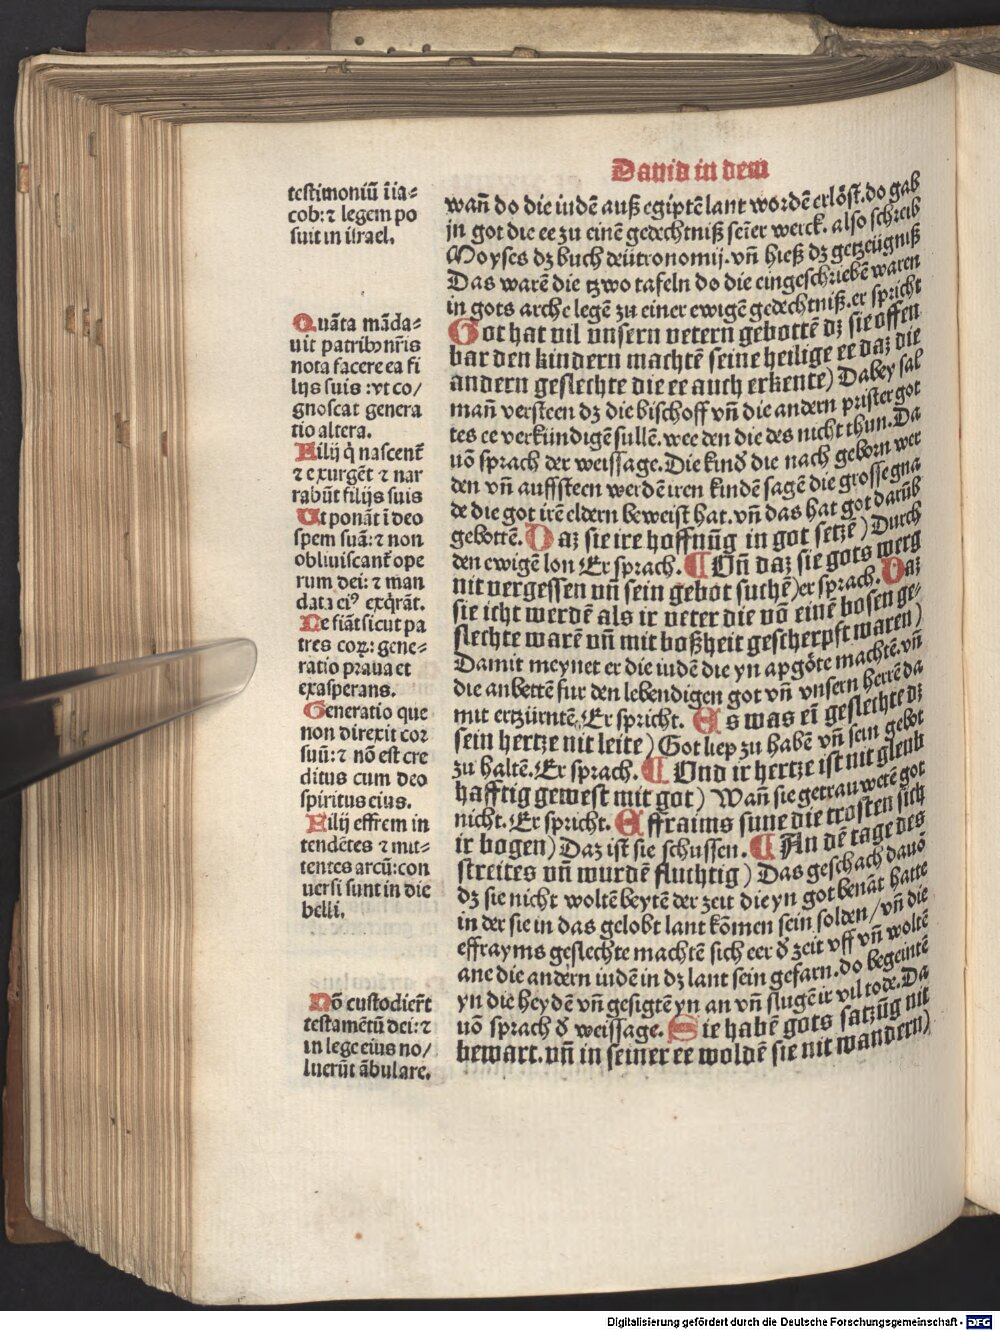 Dauid in dem
testimoniū ī ia⸗
cob: ⁊ legem po
suit in israel.
Quāta māda⸗
uit patribꝫ nr̄is
nota facere ea fi
lijs suis : vt co/
gnoscat genera
tio altera.
Filij q̇ nascent᷑
⁊ exurgēt ⁊ nar
rabūt filijs suis
Ut ponāt ī deo
spem suā: ⁊ non
obliuiscant᷑ ope
rum dei: ⁊ man
data eiꝰ exq̇rāt.
Ne fiāt sicut pa
tres coꝝ: gene⸗
ratio praua et
exasperans.
Generatio que
non direxit cor
suū: ⁊ nō est cre
ditus cum deo
spiritus eius.
Filij effrem in
tendētes ⁊ mit⸗
tentes arcū: con
uersi sunt in die
belli.
Nō custodier̄t
testamētū dei: ⁊
in lege eius no/
luerūt ābulare.
wan̄ do die iudē auß egiptē lant wordē erlöst. do gab
jn got die ee zu einē gedechtniß seīer werck. also schreib
Moyses dz buch deütronomij. vn̄ hieß dz getzeügniß
Das warē die tzwo tafeln do die eingeschriebē waren
in gots arche legē zu einer ewigē gedechtniß. er spricht
Got hat vil vnsern vetern gebottē dz sie offen
bar den kindern machtē seine heilige ee daz die
andern geslechte die ee auch erkente) Dabey sal
man̄ versteen dz die bischoff vn̄ die andern prister got
tes ee verkündigē sullē. wee den die des nicht thun. Da
uō sprach der weissage. Die kind̄ die nach geborn wer
den vn̄ auffsteen werdē iren kindē sagē die grosse gna
de die got irē eldern beweist hat. vn̄ das hat got darūb
gebottē. Daz sie ire hoffnūg in got setzē) Durch
den ewigē lon Er sprach. ¶ Vn̄ daz sie gots werg
nit vergessen vn̄ sein gebot suchē) er sprach. Daz
sie icht werdē als ir veter die vō einē bosen ge⸗
slechte warē vn̄ mit boßheit gescherpft waren)
Damit meynet er die iudē die yn apgöte machtē. vn̄
die anbettē fur den lebendigen got vn̄ vnsern herrē da
mit ertzürntē. Er spricht. Es was eī geslechte dz
sein hertze nit leite) Got liep zu habē vn̄ sein gebot
zu haltē. Er sprach. ¶ Vnd ir hertze ist nit gleub
hafftig gewest mit got) Wan̄ sie getrauwetē got
nicht. Er spricht. Effraims sune die trosten sich
ir bogen) Daz ist sie schussen. ¶ An dē tage des
streites vn̄ wurdē fluchtig) Das geschach dauō
dz sie nicht woltē beytē der zeit die yn got benāt hatte
in der sie in das gelobt lant kōmen sein solden / vn̄ die
effrayms geslechte machtē sich eer d̄ zeit vff vn̄ woltē
ane die andern iudē in dz lant sein gefarn. do begeintē
yn die heydē vn̄ gesigtē yn an vn̄ slugē ir vil tode. Da
uō sprach d̄ weissage. Sie habē gots satzūg nit
bewart. vn̄ in seiner ee woldē sie nit wandern)
Digitalisierung gefördert durch die Deutsche Forschungsgemeinschaft - DFG